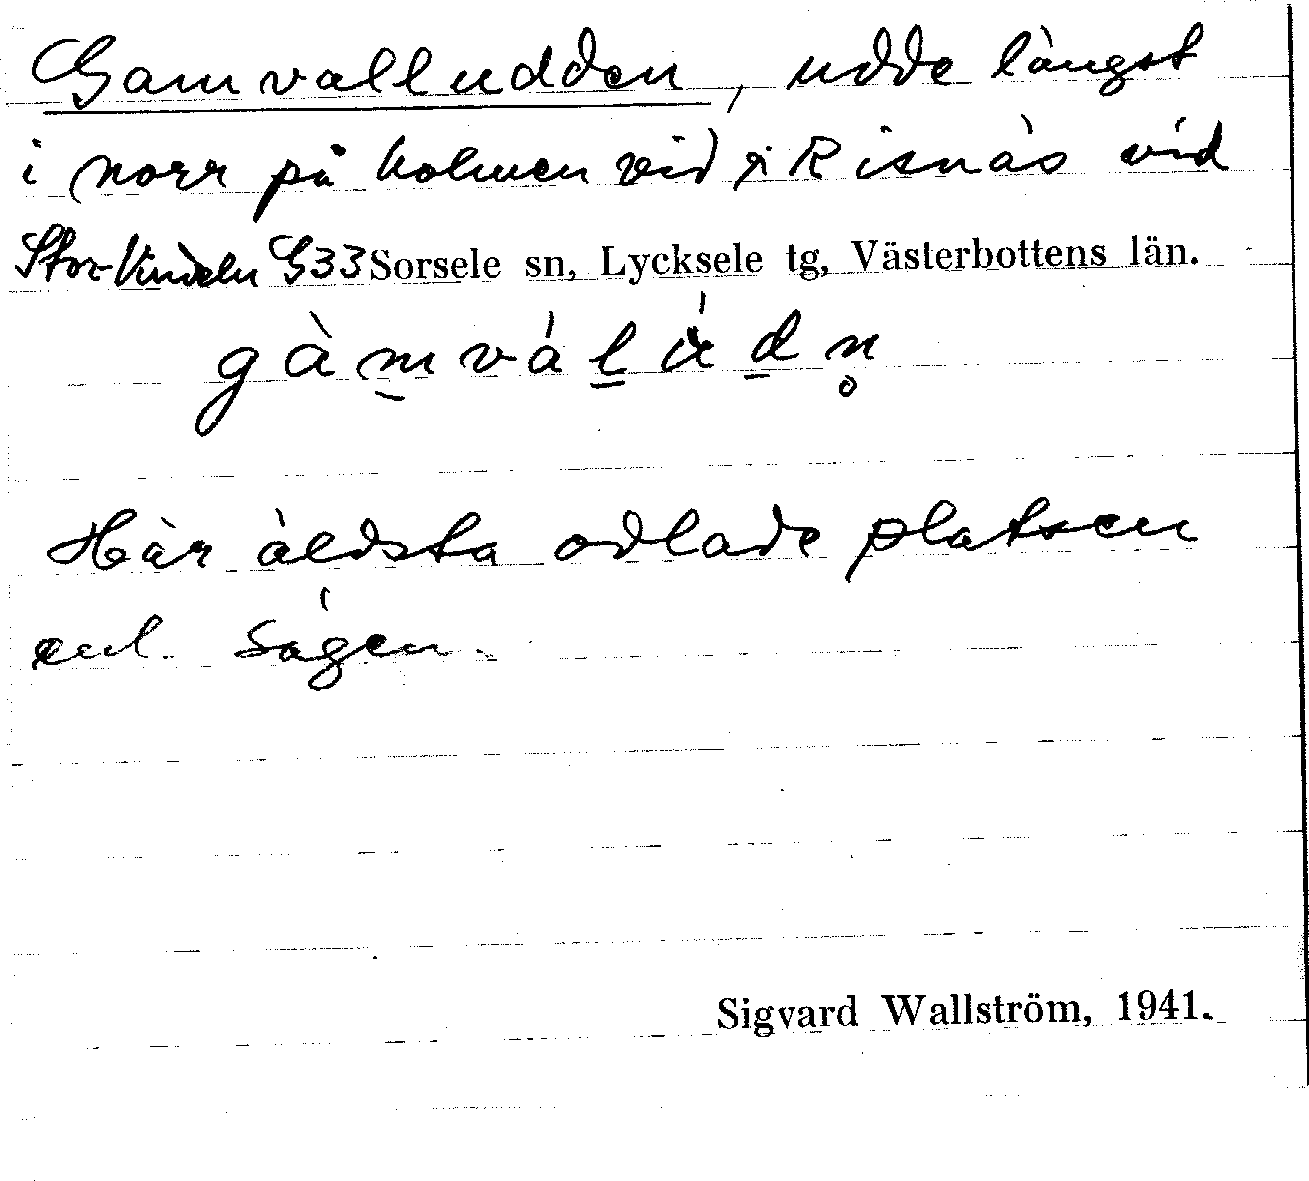 Gamvalludden, udde längst
i norr på holmen vid Risnäs vid
Stor-Vindeln G33 Sorsele sn, Lycksele tg, Västerbottens län.
Här äldsta odlade platsen
enl. sägen.
Sigvard Wallström, 1941.